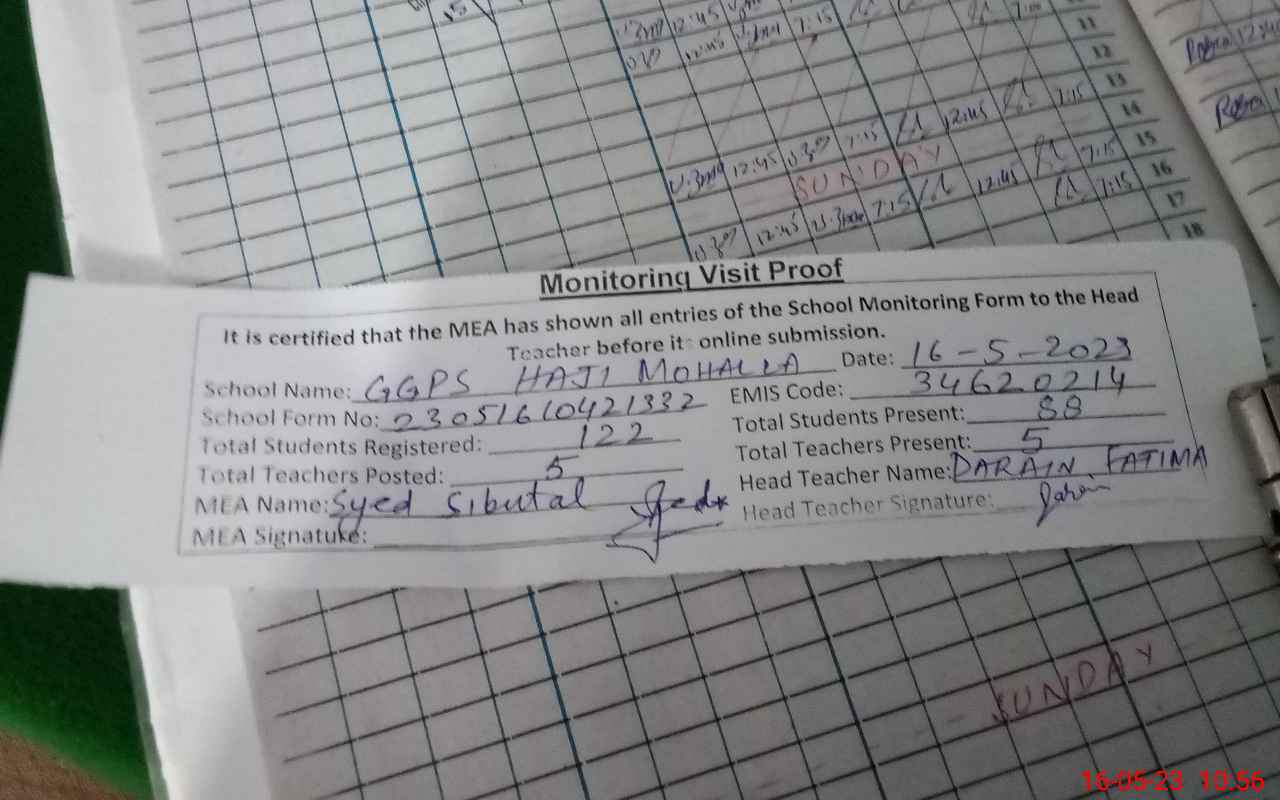 11
12
13
12:45 7:15 12:45 7:15
14
SUNDAY
15
12:45 7:15 12:45 7:15
16
7:15
17
18
Monitoring Visit Proof
It is certified that the MEA has shown all entries of the School Monitoring Form to the Head
Teacher before its online submission.
School Name: GGPS HAJI MOHALLA Date: 16-5-2023
School Form No: 23051610421332 EMIS Code: 34620214
Total Students Registered: 122 Total Students Present: 88
Total Teachers Posted: 5 Total Teachers Present: 5
MEA Name: Syed Sibutal Head Teacher Name: DARAIN FATIMA
MEA Signatuke: Head Teacher Signature:
SUNDAY
16-05-23 10:56